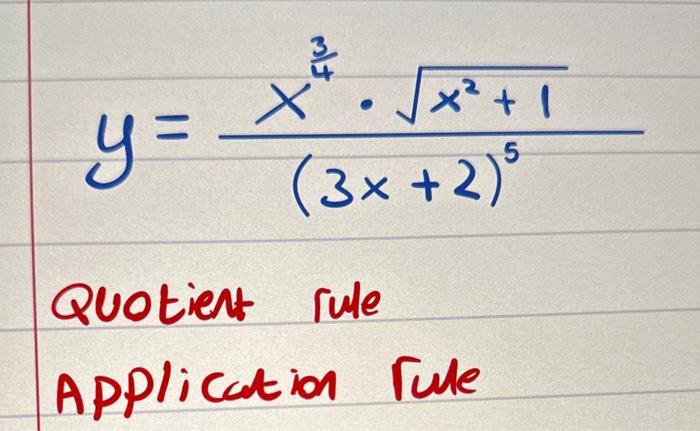 y = x^(3/4) · √(x² + 1) / (3x + 2)⁵
Quotient rule
Application rule